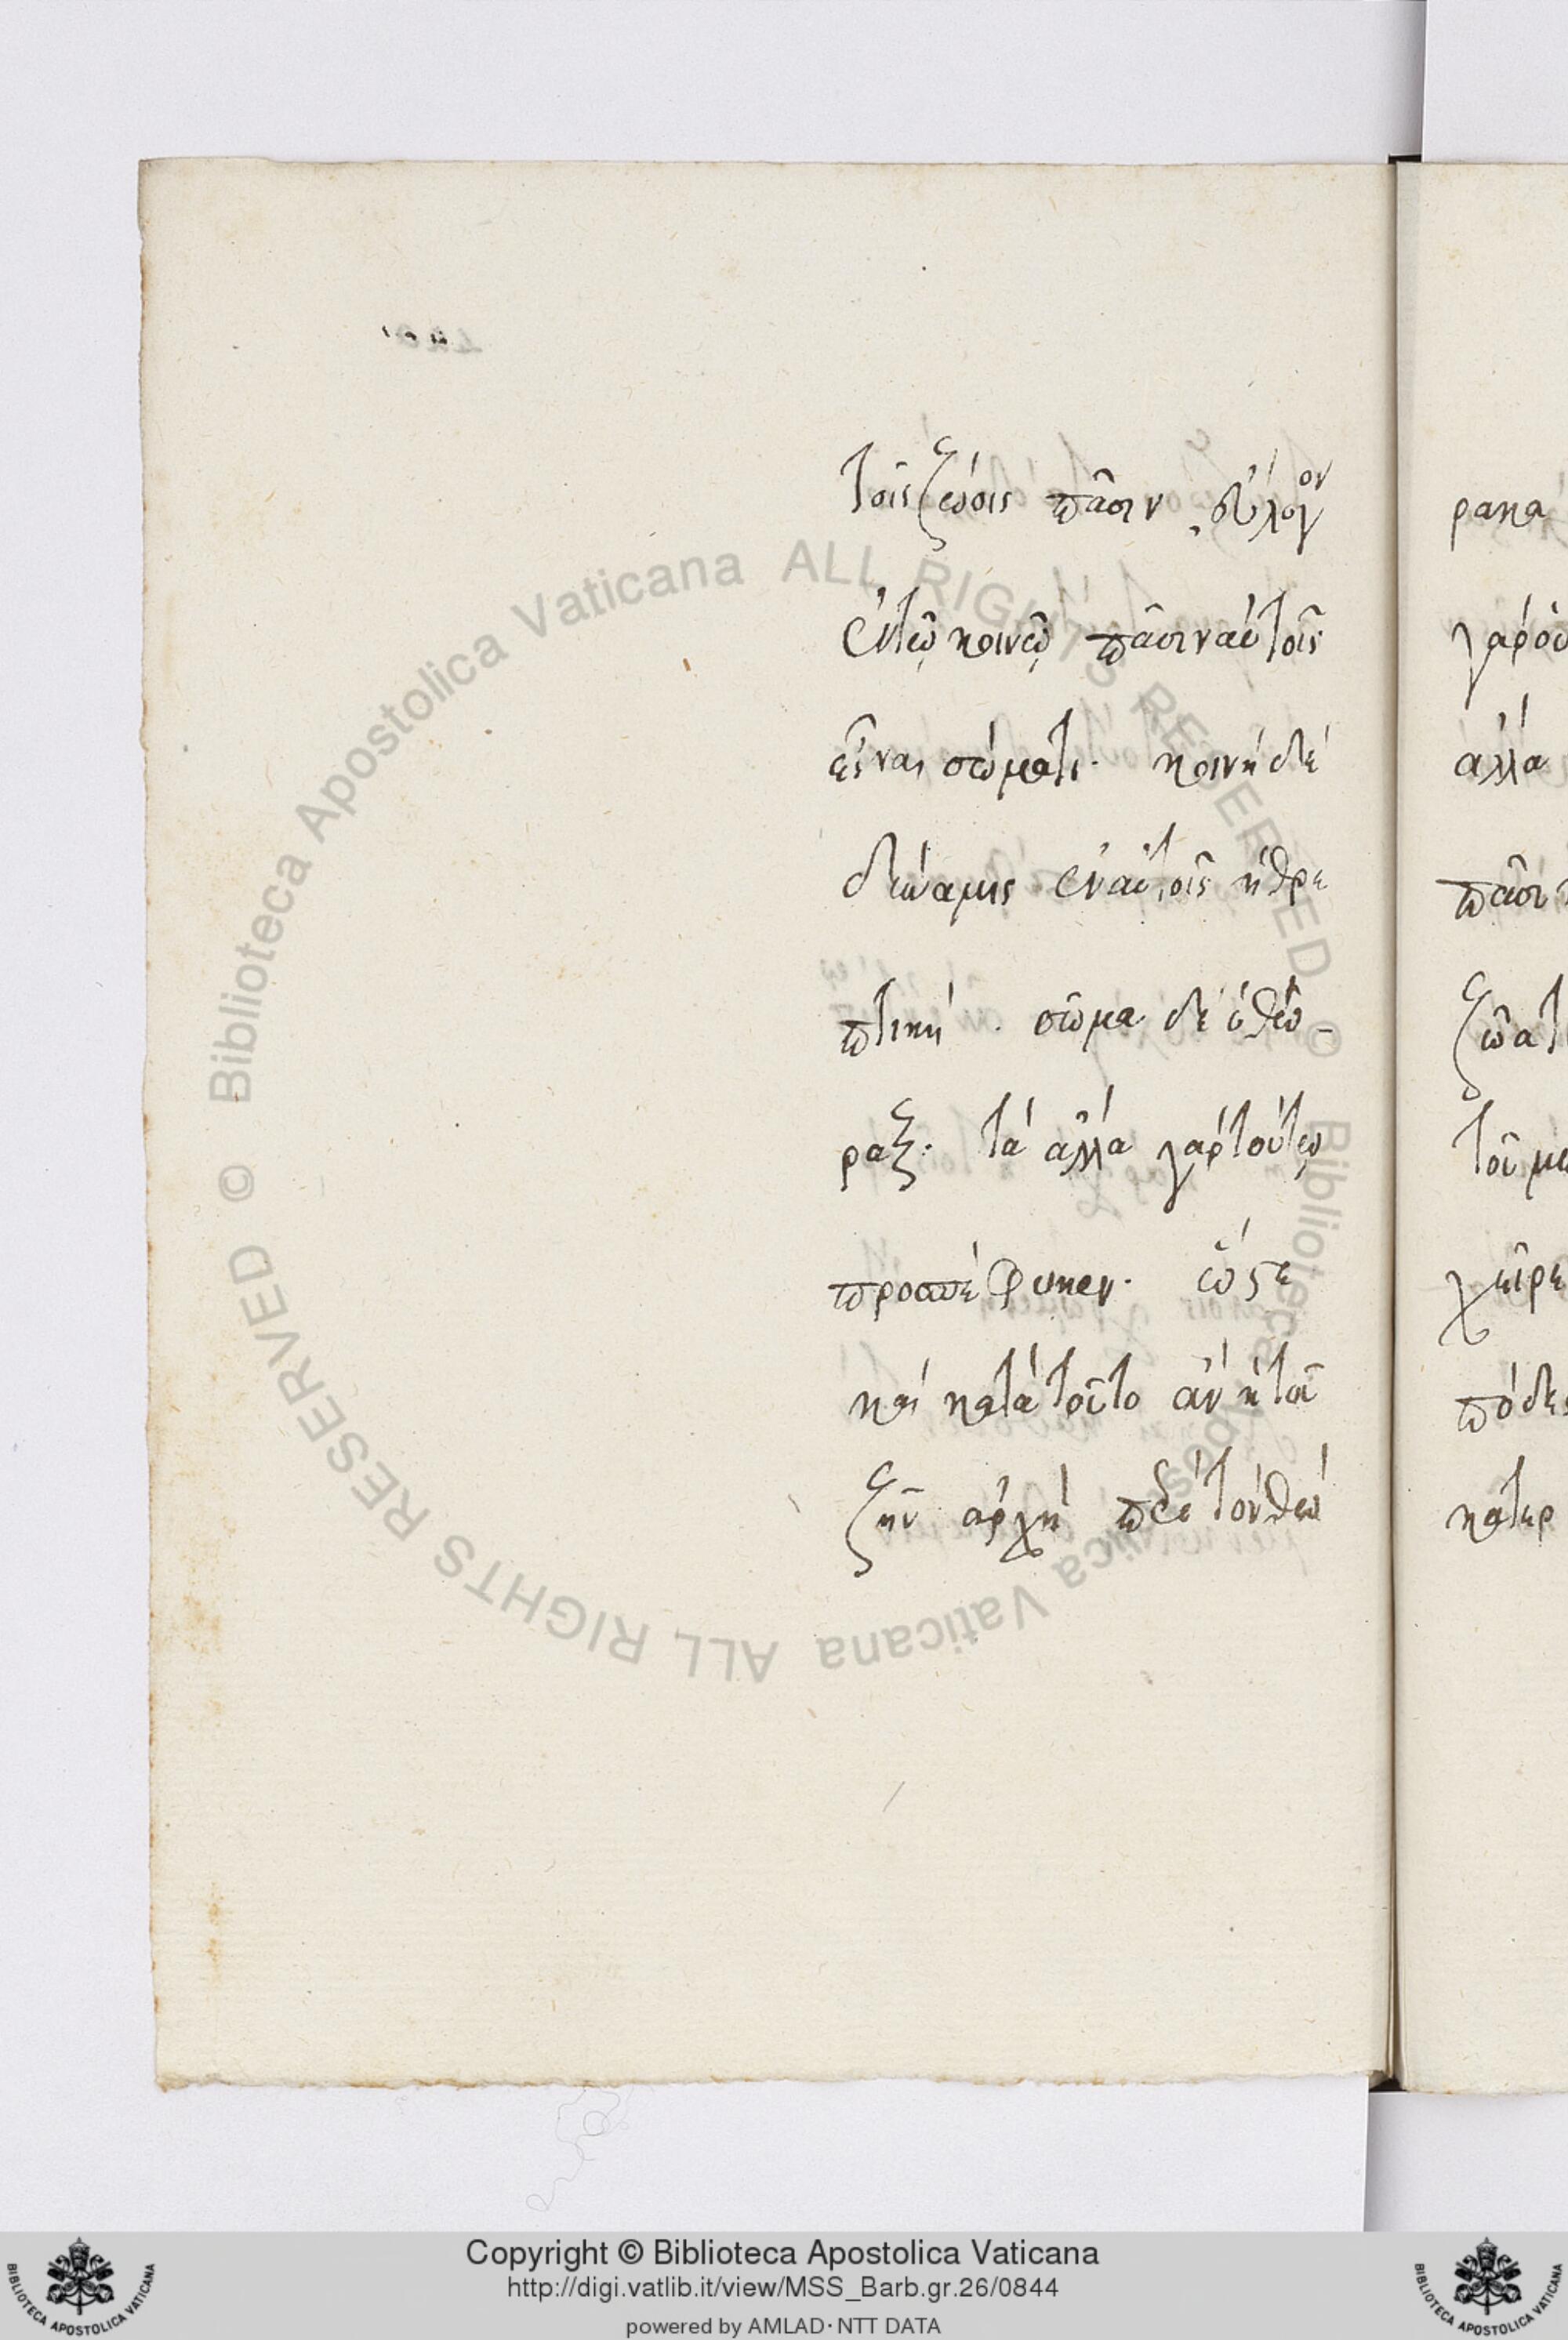 τοῖς ζώοις πᾶσιν, εὔλογον
ἐν τῷ κοινῷ πᾶσιν αὐτοῖς
εἶναι σώματι· κοινὴ δὲ
δύναμις ἐν αὐτοῖς ἡ θρε
πτική· σῶμα δὲ ὁ θώ-
ραξ· τὰ ἄλλα γὰρ τούτῳ
προσπέφυκεν· ὥστε
καὶ κατὰ τοῦτο ἂν ἡ τοῦ
ζῆν ἀρχὴ περὶ τὸν θώ
ρακα
γὰρ
ἀλλὰ
πᾶσι
ζῶα
τοῦ
χεῖρε
πόδες
Biblioteca Apostolica Vaticana ALL RIGHTS RESERVED © Biblioteca Apostolica Vaticana ALL RIGHTS RESERVED ©
Copyright © Biblioteca Apostolica Vaticana
http://digi.vatlib.it/view/MSS_Barb.gr.26/0844
powered by AMLAD·NTT DATA
BIBLIOTECA APOSTOLICA VATICANA
BIBLIOTECA APOSTOLICA VATICANA